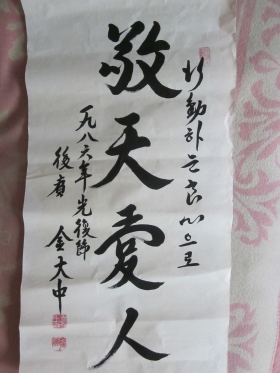 行動하는良心으로
敬天愛人
一九八六年光復節
後廣 金大中